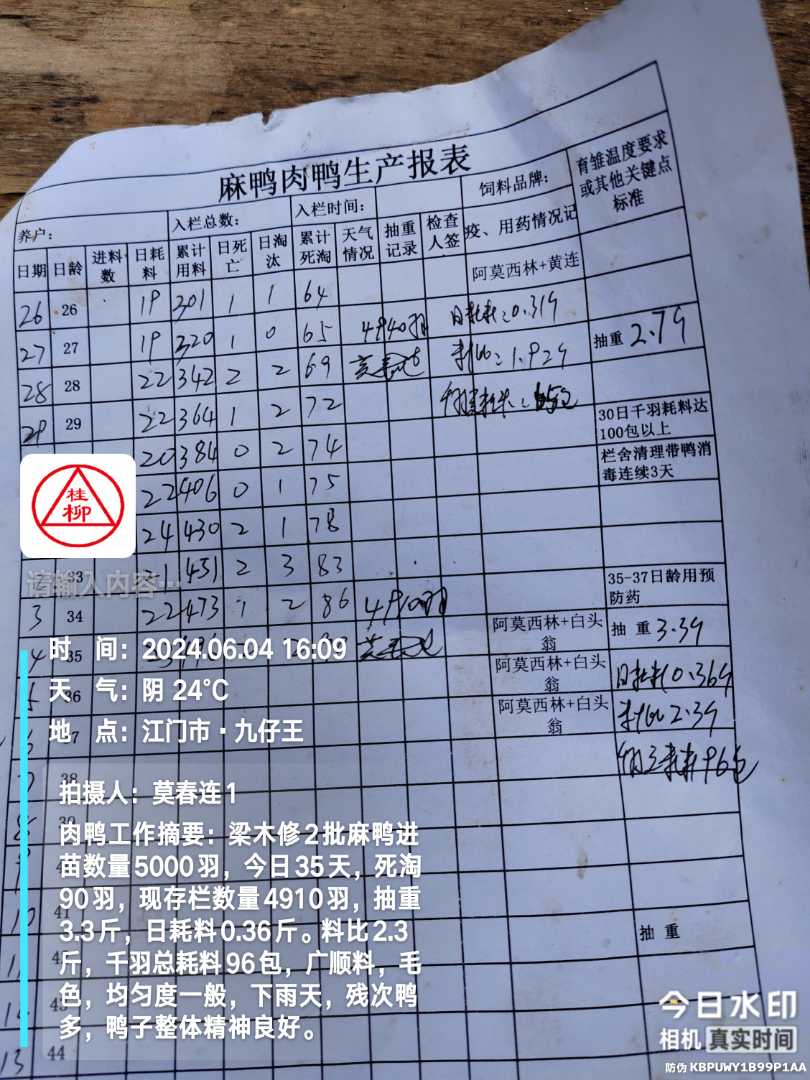 麻鸭肉鸭生产报表
养户: 入栏总数: 入栏时间: 饲料品牌: 育雏温度要求或其他关键点标准
日期 日龄 进料数 日耗料 累计用料 日死亡 日淘汰 累计死淘 天气情况 抽重记录 检查人签 疫、用药情况记
阿莫西林+黄连
26 26 19 301 1 1 64
27 27 19 320 1 0 65 4940羽 日耗料:0.31斤 抽重 2.7斤
28 28 22 342 2 2 69 料比:1.92斤
29 29 22 364 1 2 72
30日千羽耗料达100包以上
20 384 0 2 74
栏舍清理带鸭消毒连续3天
22 406 0 1 75
24 430 2 1 78
33 21 451 2 3 83
35-37日龄用预防药
3 34 22 473 1 2 86 4910羽
4 35 阿莫西林+白头翁 抽重 3.3斤
5 36 阿莫西林+白头翁 日耗料0.36斤
6 37 阿莫西林+白头翁 料比2.3斤
7 38 96包
8 39
10 41
抽重
13 44
桂柳
请输入内容…
时 间：2024.06.04 16:09
天 气：阴 24℃
地 点：江门市·九仔王
拍摄人：莫春连1
肉鸭工作摘要：梁木修2批麻鸭进
苗数量5000羽，今日35天，死淘
90羽，现存栏数量4910羽，抽重
3.3斤，日耗料0.36斤。料比2.3
斤，千羽总耗料96包，广顺料，毛
色，均匀度一般，下雨天，残次鸭
多，鸭子整体精神良好。
今日水印
相机 真实时间
防伪 KBPUWY1B99P1AA